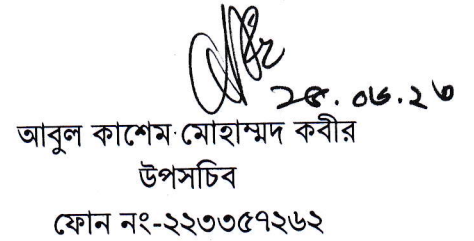 ২৫.০৬.২৩
আবুল কাশেম মোহাম্মদ কবীর
উপসচিব
ফোন নং-২২৩৩৫৭২৬২